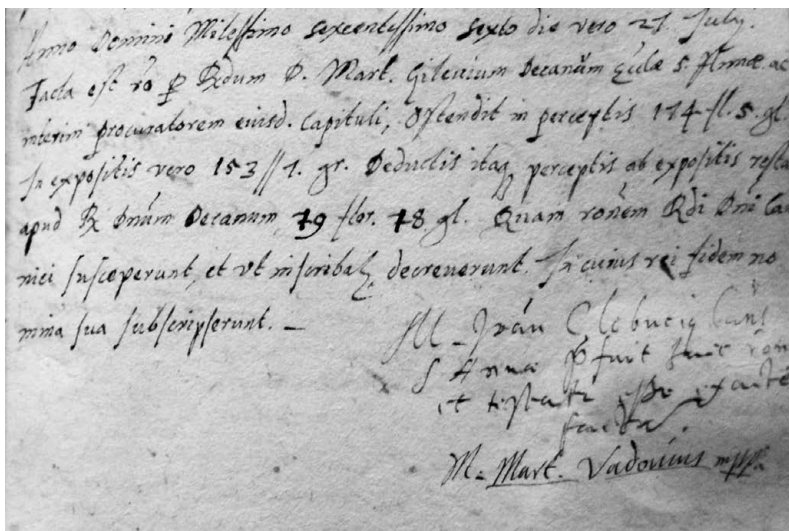 Anno Domini Milessimo sexcentessimo sexto die vero 21. July.
Facta est ro p Rdum D. Mart. Decanum S. Annæ ac
interim procuratorem eiusd. Capituli, Ostendit in perceptis 174 fl. 5. gl.
In expositis vero 153 // 1. gr. Deductis itaq perceptis ab expositis resta
apud R Dnum Decanum 19 flor. 18 gl. Quam ronem Rdi Dni Ca
nici susceperunt, et vt inscribat decreverunt. In cuius rei fidem no
mina sua subscripserunt. —
M.
S Annæ fuit huic ron
et esse
facta.
M. Mart. Vadovius mppa